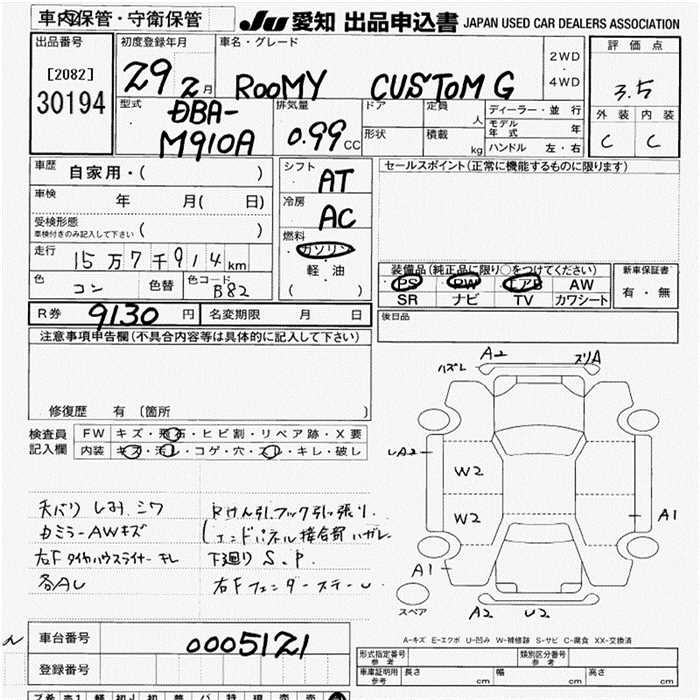 車内保管・守衛保管 JU 愛知 出品申込書 JAPAN USED CAR DEALERS ASSOCIATION
出品番号 初度登録年月 車名・グレード 2WD・4WD 評価点
[2082] 30194 29 2月 ROOMY CUSTOM G 3.5
型式 DBA-M910A 排気量 0.99CC ドア 定員 人 ディーラー・並行 外装 内装
形状 積載 kg モデル年式 年 C C
ハンドル 左・右
車歴 自家用・( ) シフト AT セールスポイント(正常に機能するものに限ります)
車検 年 月( 日) 冷房 AC
受検形態 ( )
車検付きのみ記入して下さい
燃料 ガソリン・軽油 ( )
走行 15万7千914km
色 コン 色替 色コード B82
装備品(純正品に限り○をつけてください) 新車保証書
PS PW エアB AW 有・無
SR ナビ TV カワシート
R券 9130円 名変期限 月 日 後日品
注意事項申告欄(不具合内容等は具体的に記入して下さい)
修復歴 有 [箇所 ]
検査員記入欄 FW キズ・飛石・ヒビ割・リペア跡・X要
内装 キズ・汚レ・コゲ・穴・スレ・キレ・破レ
天バリ しみ、シワ
カミラーAWキズ
左Fタイヤハウスライナーキレ
各AU
Rけん引フック引っ張り
エンドパネル接合部ハガレ
下廻りS.P.
右Fフェンダーステー
ハズレ A2 スリA
W2
W2
A1
A1
A2 U2
スペア
A-キズ E-エクボ U-凹み W-補修跡 S-サビ C-腐食 XX-交換済
車台番号 0005121
登録番号
形式指定番号 参考 類別区分番号 参考
車庫証明用 参考 長さ cm 幅 cm 高さ cm